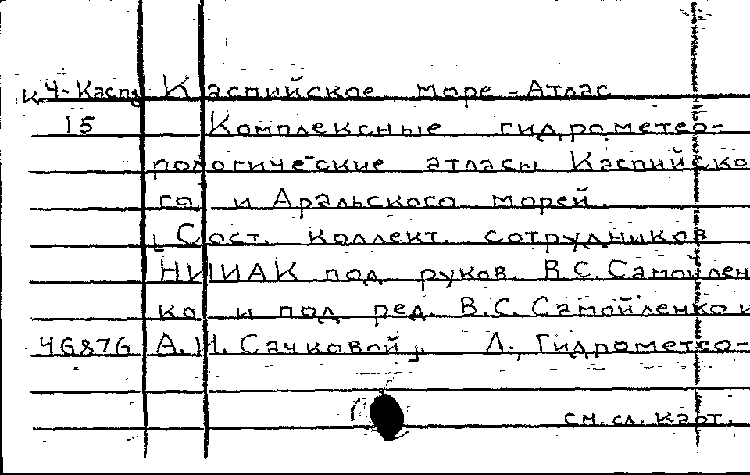 к.Ч-Касп. Каспийское море - Атлас
15 Комплексные гидрометео-
рологические атласы Каспийско
го и Аральского морей.
[Сост. коллект. сотрудников
НИИАК под руков. В.С. Самойлен
ко и под ред. В.С. Самойленко и
46876 А.И. Сачковой]. Л., Гидрометео-
см. сл. карт.